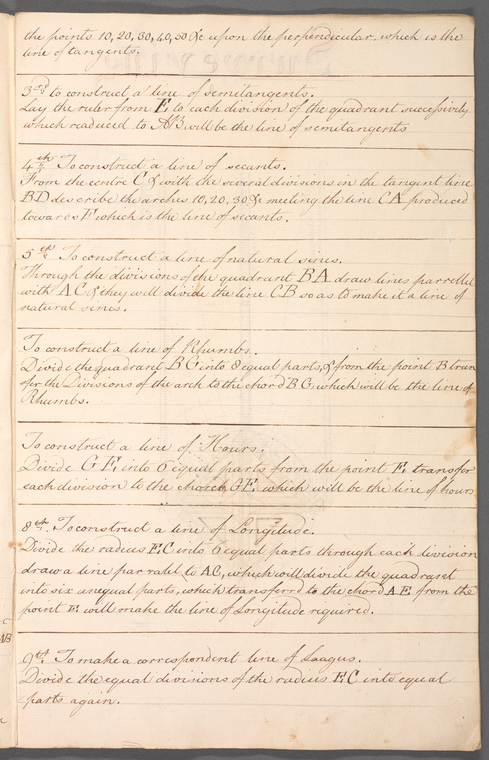 the points 10, 20, 30, 40, 50 &c upon the perpendicular which is the
line of tangents.
3rd to construct a line of semitangents.
Lay the ruler from E to each division of the quadrant successively
which readuced to AB will be the line of semitangents
4th To construct a line of secants.
From the centre C & with the several divisions in the tangent line
BD describe the arches 10, 20, 30 &c meeting the line CA produced
towards F which is the line of secants.
5th To construct a line of natural sines.
Through the divisions of the quadrant BA draw lines parrellel
with AC & they will divide the line CB so as to make it a line of
natural sines.
To construct a line of Rhumbs.
Divide the quadrant BG into 8 equal parts, & from the point B tran
sfer the Divisions of the arch to the chord BG which will be the line of
Rhumbs.
To construct a line of Hours.
Divide GE, into 6 equal parts from the point E transfer
each division to the chord GE, which will be the line of hours
8th. To construct a line of Longitude.
Divide the radius EC into 6 equal parts through each division
draw a line parralel to AC, which will divide the quadrant
into six unequal parts, which transferrd to the chord AE from the
point E will make the line of Longitude required.
9th To make a correspondent line of Leagus.
Divide the equal divisions of the radius EC into equal
parts again.